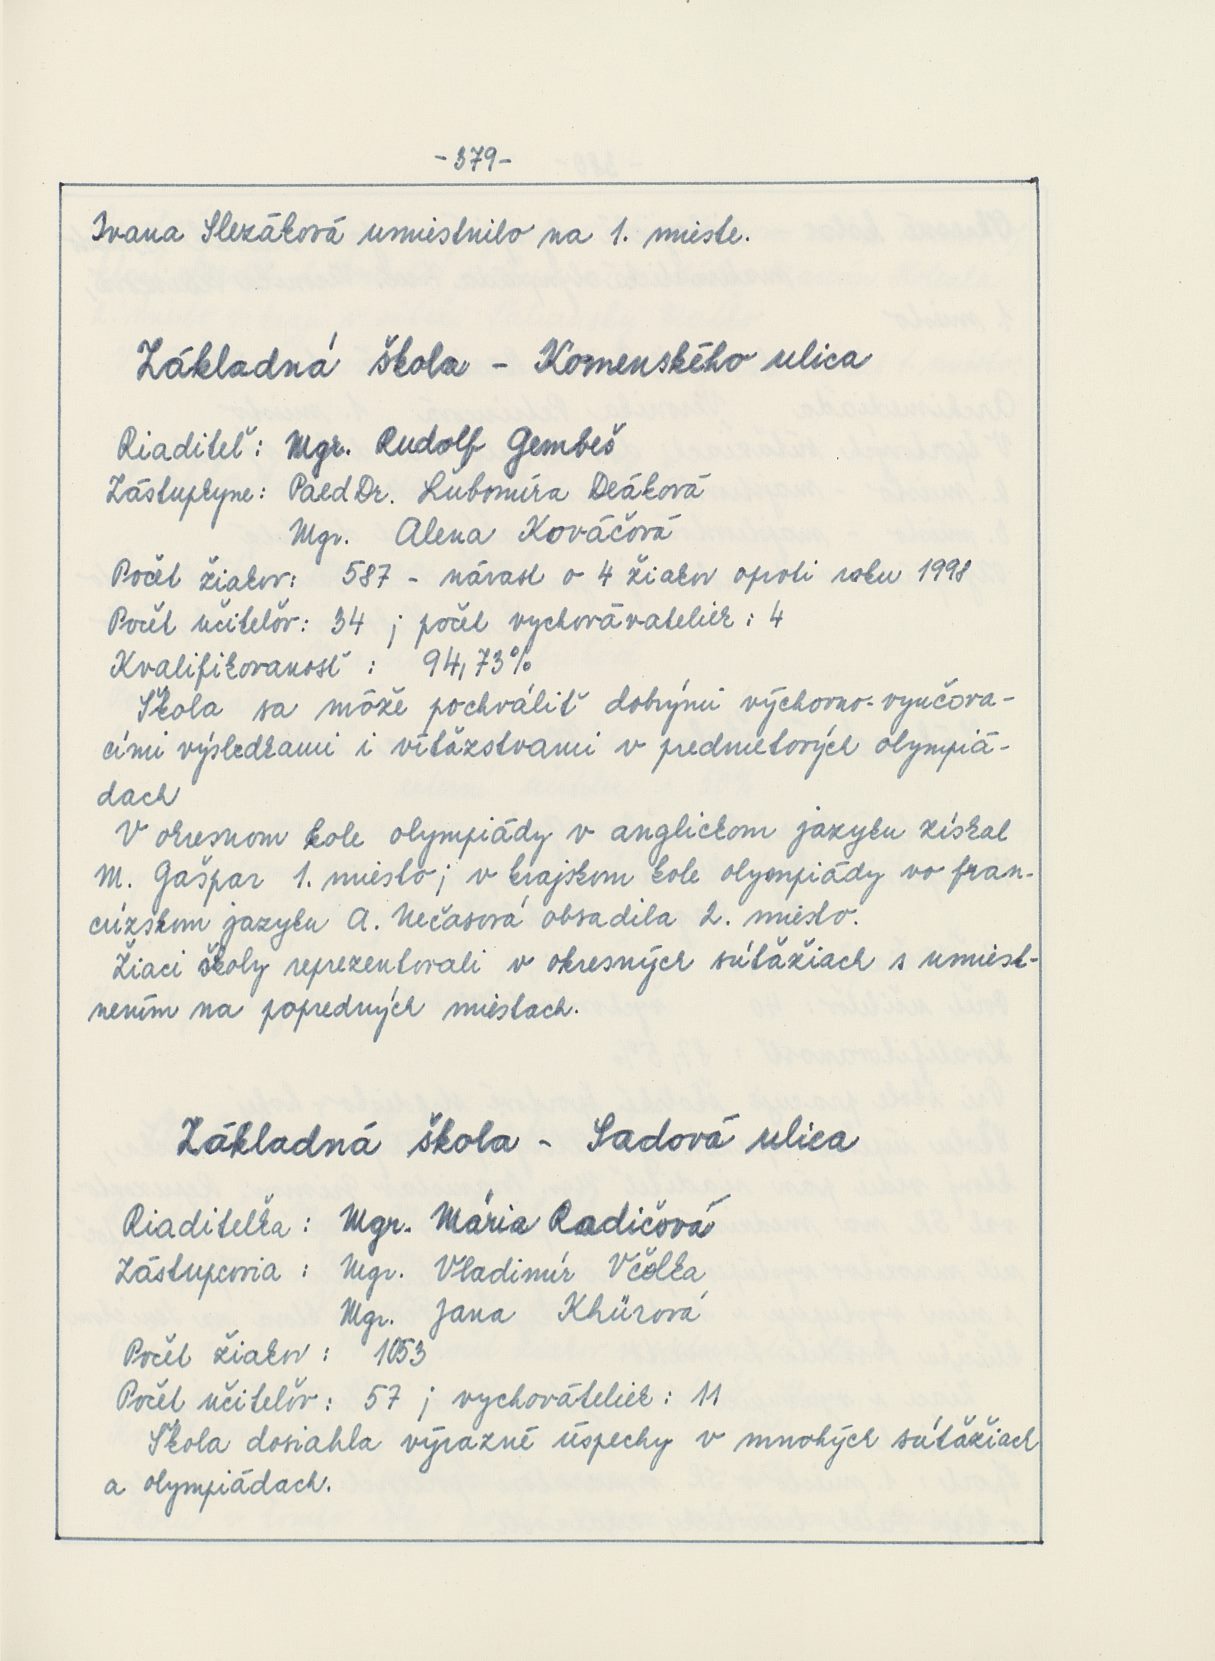 -379-
Ivana Slezáková umiestnilo na 1. mieste.
Základná škola - Komenského ulica
Riaditeľ: Mgr. Rudolf Gembeš
Zástupkyne: PaedDr. Ľubomíra Deáková
Mgr. Alena Kováčová
Počet žiakov: 587 - nárast o 4 žiakov oproti roku 1998
Počet učiteľov: 34 ; počet vychovávateliek : 4
Kvalifikovanosť : 94,73%
Škola sa môže pochváliť dobrými výchovno-vyučova-
cími výsledkami i víťazstvami v predmetových olympiá-
dach
V okresnom kole olympiády v anglickom jazyku získal
M. Gašpar 1. miesto; v krajskom kole olympiády vo fran-
cúzskom jazyku A. Nečasová obsadila 2. miesto.
Žiaci školy reprezentovali v okresných súťažiach s umiest-
nením na popredných miestach.
Základná škola - Sadová ulica
Riaditeľka : Mgr. Mária Radičová
Zástupcovia : Mgr. Vladimír Včelka
Mgr. Jana Khürová
Počet žiakov : 1053
Počet učiteľov : 57 ; vychovateliek : 11
Škola dosiahla výrazné úspechy v mnohých súťažiach
a olympiádach.